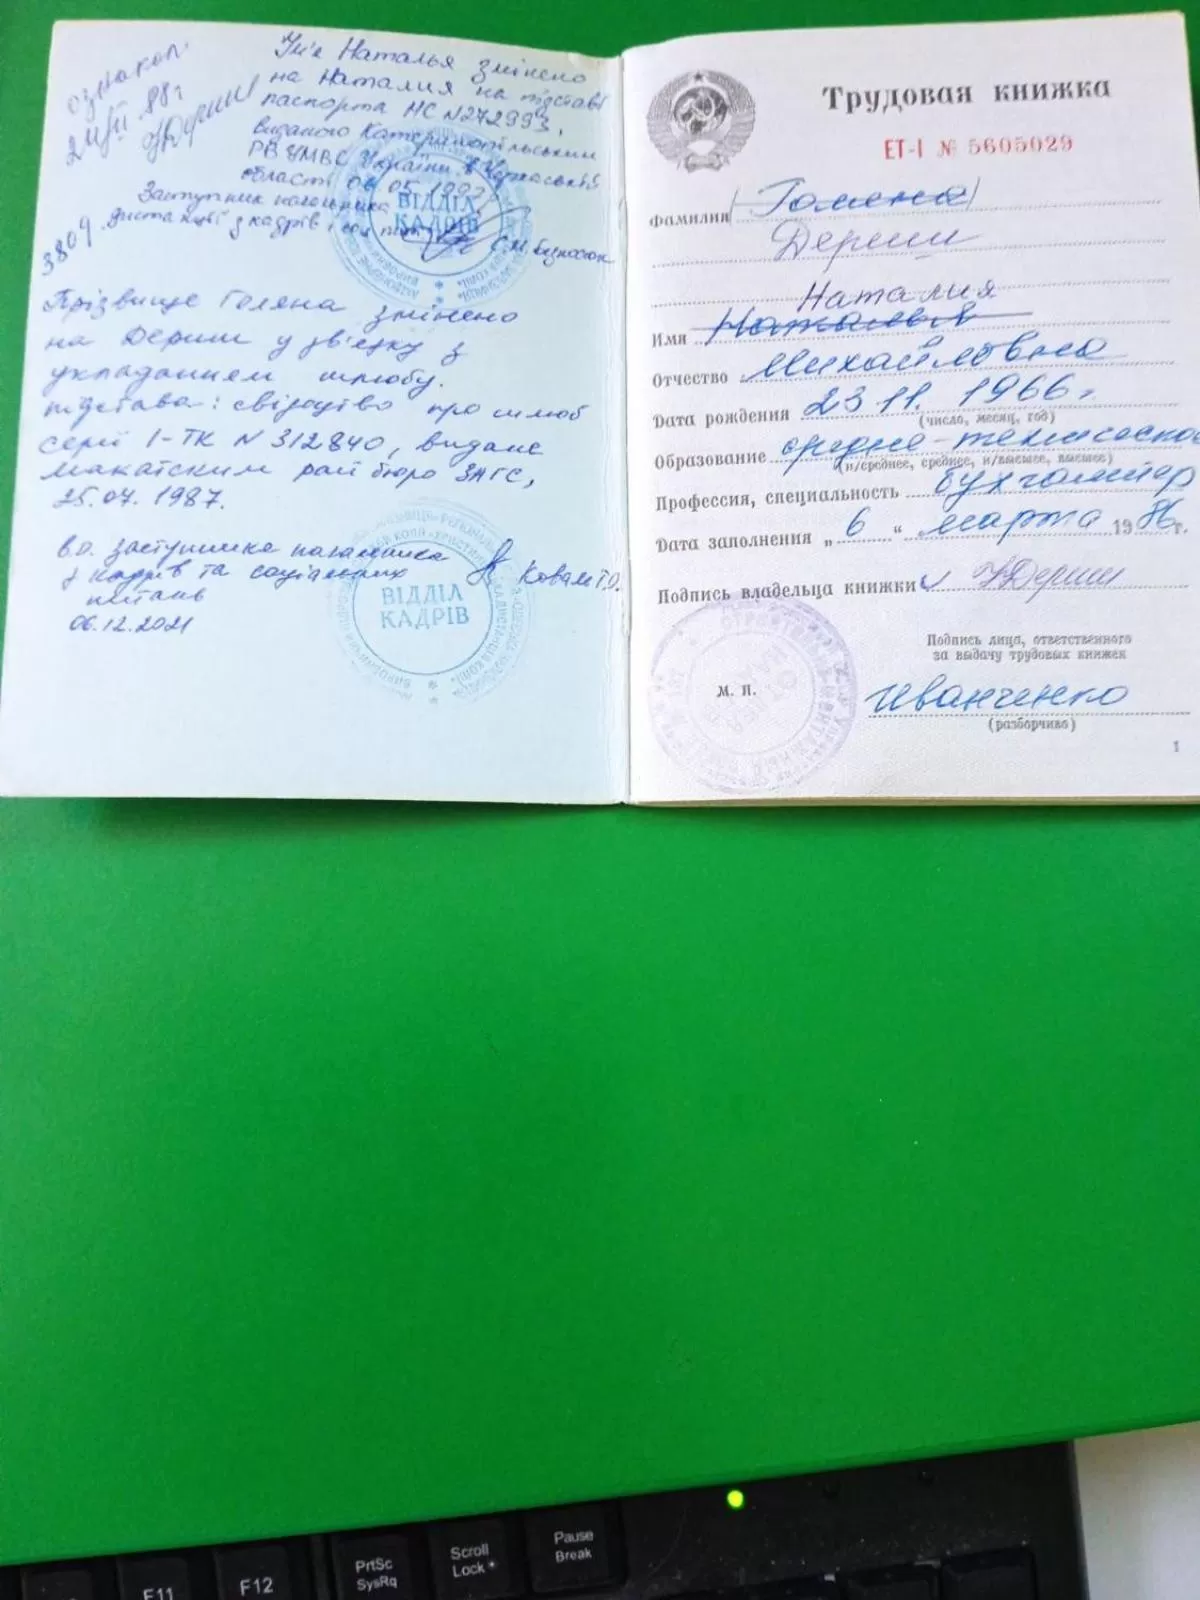 ознакол.
24/III 88г
Ім'я Наталья змінено
на Наталия на підставі
паспорта НС №272993,
виданого Катеринопільським
РВ УМВС України в Черкаській
області 06.05.1997
Заступник начальника
дистанції з кадрів і соц пит
С.М. Безносюк
3809.
ВІДДІЛ
КАДРІВ
Прізвище Голяна змінено
на Дериш у зв'язку з
укладанням шлюбу.
Підстава: свідоцтво про шлюб
серії І-ТК N 312840, видане
Макатским рай бюро ЗАГС,
25.07.1987.
в.о. заступника начальника
з кадрів та соціальних
питань
Коваль Т.О.
06.12.2021
ВІДДІЛ
КАДРІВ
Трудовая книжка
ЕТ-I № 5605029
Фамилия
Дериш
Наталия
Имя Наталья
Отчество Михайловна
Дата рождения 23 11. 1966 г.
(число, месяц, год)
Образование средне-техническо
(н/среднее, среднее, н/высшее, высшее)
Профессия, специальность бухгалтер
Дата заполнения „ 6 “ марта 1986 г.
Подпись владельца книжки Дериш
Подпись лица, ответственного
за выдачу трудовых книжек
М. П.
Иванченко
(разборчиво)
1
F11
F12
PrtSc
SysRq
Scroll
Lock
Pause
Break